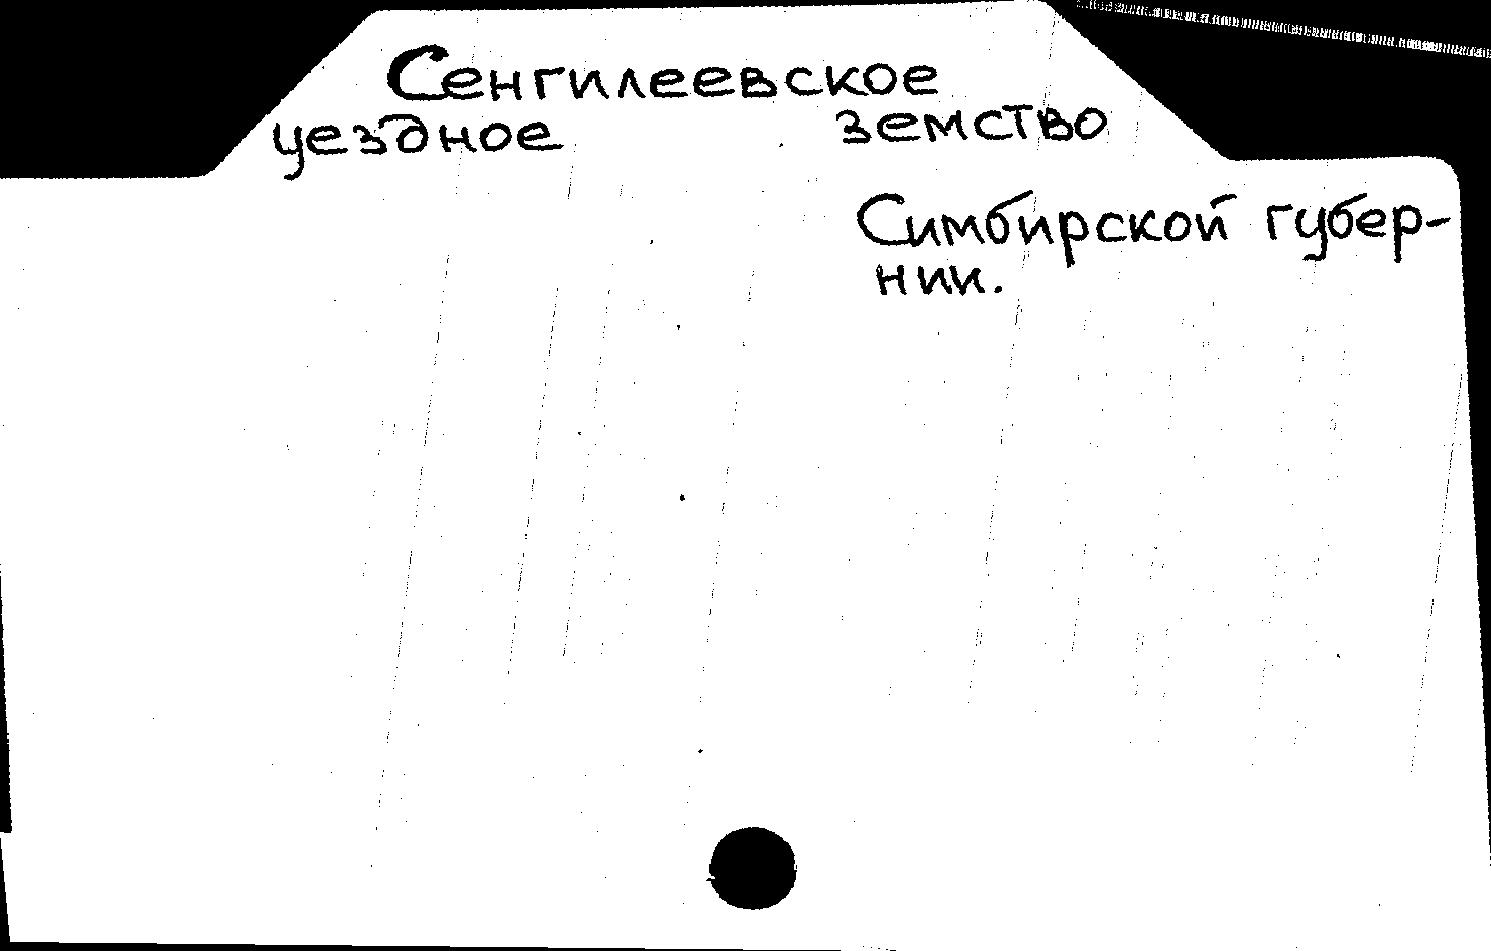 Сенгилеевское
уездное земство
Симбирской губер-
нии.